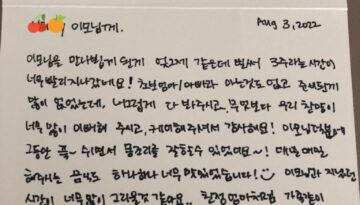 이모님께.
Aug 3, 2022
이모님을 만나뵙게 된게 엊그제 같은데 벌써 3주라는 시간이
너무 빨리 지나갔네요! 초보엄마/아빠라 아는것도 없고 준비된게
많이 없었는데, 나으럽게 다 봐주시고, 무엇보다 우리 찰떡이
너무 많이 이뻐해 주시고, 케어해주셔서 감사해요! 이모님덕분에
그동안 푹~ 쉬면서 몸조리를 잘할수 있었어요~! 매일 매일
해주시는 음식도 하나하나 너무 맛있었답니다! 이모님과 지냈던
시간이 너무 많이 그리울것 같아요.. 친정 엄마처럼 가족같이